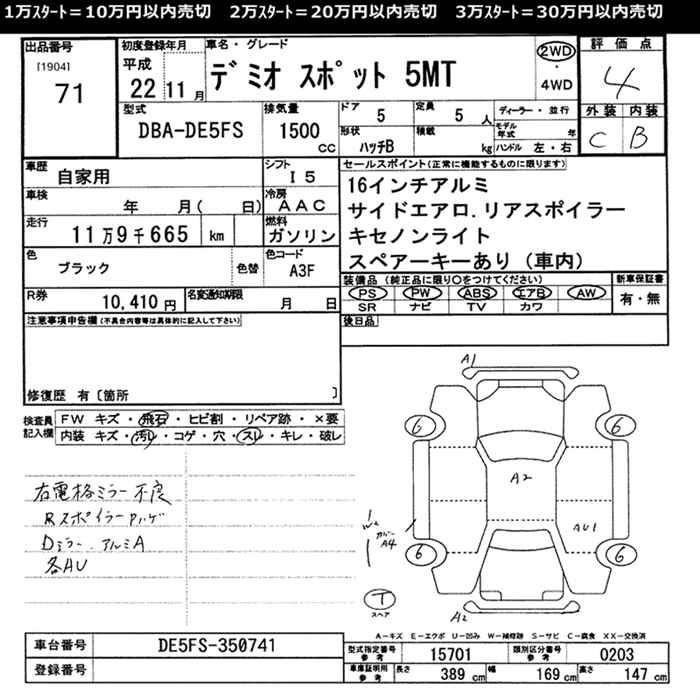 1万スタート＝10万円以内売切　2万スタート＝20万円以内売切　3万スタート＝30万円以内売切
出品番号
[1904]
71
初度登録年月
平成
22 11月
車名・グレード
デミオ スポット 5MT
2WD
・
4WD
評価点
4
外装 内装
C B
型式
DBA-DE5FS
排気量
1500
cc
ドア 5
定員 5 人
形状 ハッチB
積載 kg
ディーラー・並行
モデル年式 年
ハンドル 左・右
車歴
自家用
シフト
I 5
車検
年 月( 日)
冷房
AAC
走行
11万9千665 km
燃料
ガソリン
色
ブラック
色替
色コード
A3F
R券
10,410円
名変通知期限
月 日
セールスポイント(正常に機能するものに限ります)
16インチアルミ
サイドエアロ.リアスポイラー
キセノンライト
スペアーキーあり（車内）
装備品（純正品に限り○をつけてください）
PS PW ABS エアB AW
SR ナビ TV カワ
新車保証書
有・無
後日品
注意事項申告欄(不具合内容等は具体的に記入して下さい)
修復歴 有〔箇所 〕
検査員記入欄
FW キズ・飛石・ヒビ割・リペア跡・×要
内装 キズ・汚レ・コゲ・穴・スレ・キレ・破レ
右電格ミラー不良
Rスポイラーハゲ
Dミラー.アルミA
各AU
A1
6 6
A2
AU1
W2
カバー
A4
6 6
T
スペア
A2
A-キズ E-エクボ U-凹み W-補修跡 S-サビ C-腐食 XX-交換済
車台番号
DE5FS-350741
登録番号
型式指定番号 参考
15701
類別区分番号 参考
0203
車庫証明用 参考
長さ 389 cm
幅 169 cm
高さ 147 cm